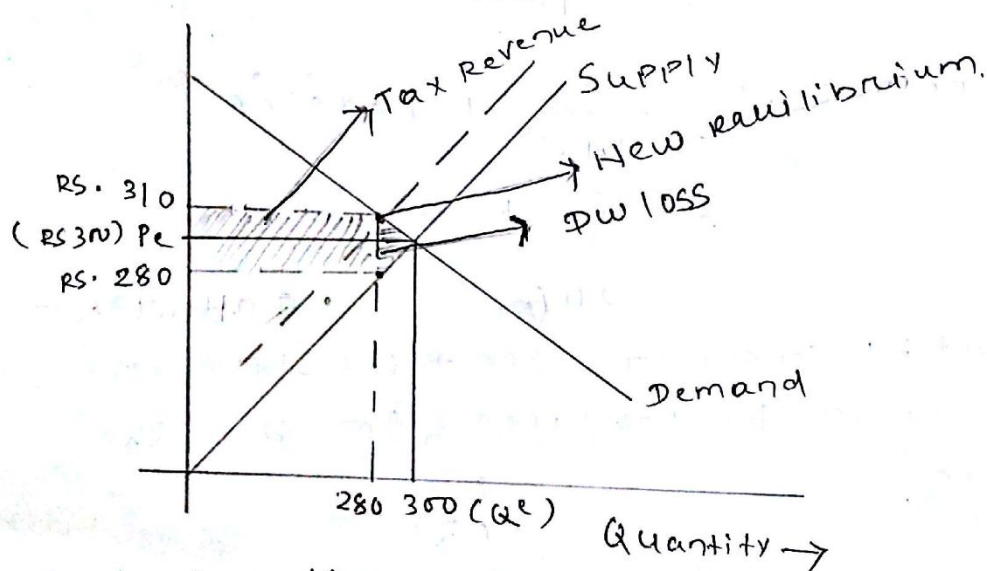 Tax Revenue
Supply
New equilibrium.
DW loss
RS. 310
(RS 300) Pe
RS. 280
Demand
280 300 (Qe)
Quantity →